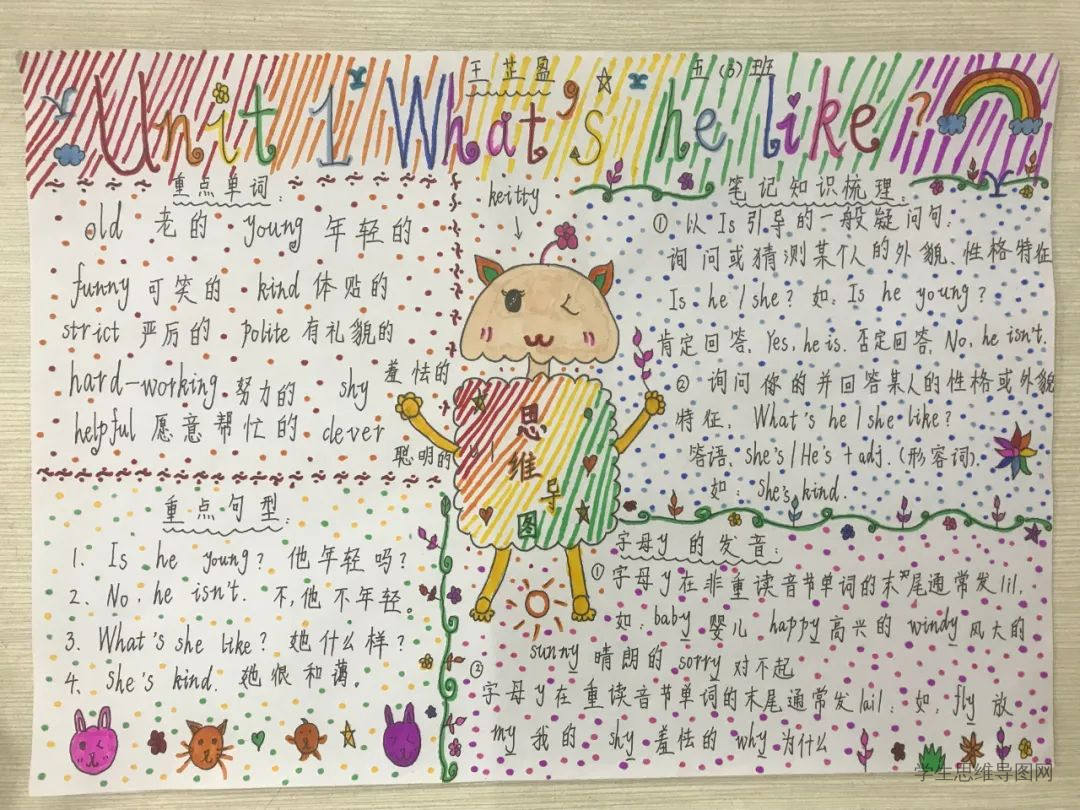 王芷盈
五(3)班
Unit 1 What's he like?
重点单词:
old 老的 young 年轻的
funny 可笑的 kind 体贴的
strict 严厉的 polite 有礼貌的
hard-working 努力的 shy 羞怯的
helpful 愿意帮忙的 clever 聪明的
重点句型:
1. Is he young? 他年轻吗?
2. No, he isn't. 不,他不年轻。
3. What's she like? 她什么样?
4. She's kind. 她很和蔼。
keitty
思
维
导
图
笔记知识梳理:
① 以Is引导的一般疑问句:
询问或猜测某个人的外貌、性格特征
Is he/she? 如:Is he young?
肯定回答、Yes, he is. 否定回答、No, he isn't.
② 询问你的并回答某人的性格或外貌
特征、What's he/she like?
答语、she's/He's + adj.(形容词).
如: She's kind.
字母y的发音:
① 字母y在非重读音节单词的末尾通常发|i|.
如: baby 婴儿 happy 高兴的 windy 风大的
sunny 晴朗的 sorry 对不起
②
字母y在重读音节单词的末尾通常发|ai|. 如: fly 放
my 我的 shy 羞怯的 why 为什么
学生思维导图网